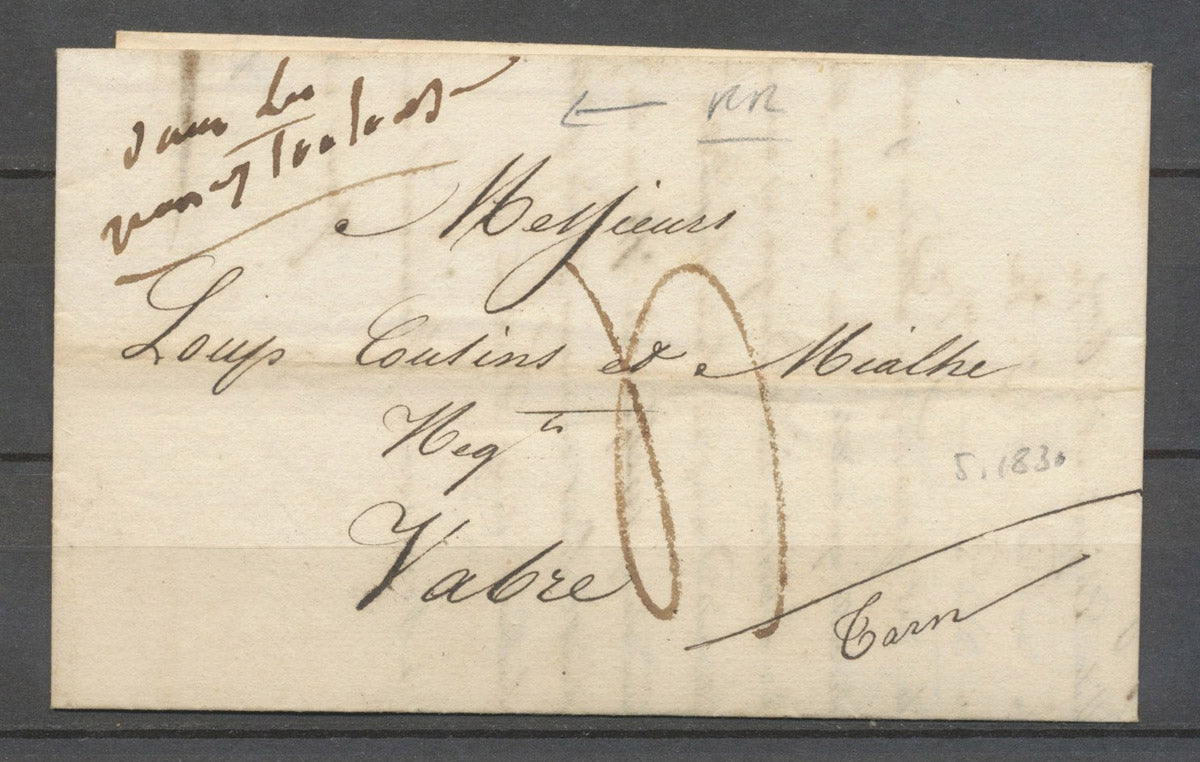 dans les
Toulouse
RR
Messieurs
Loup Cousins et Mialhe
Negts
Vabre
5.1830
Tarn